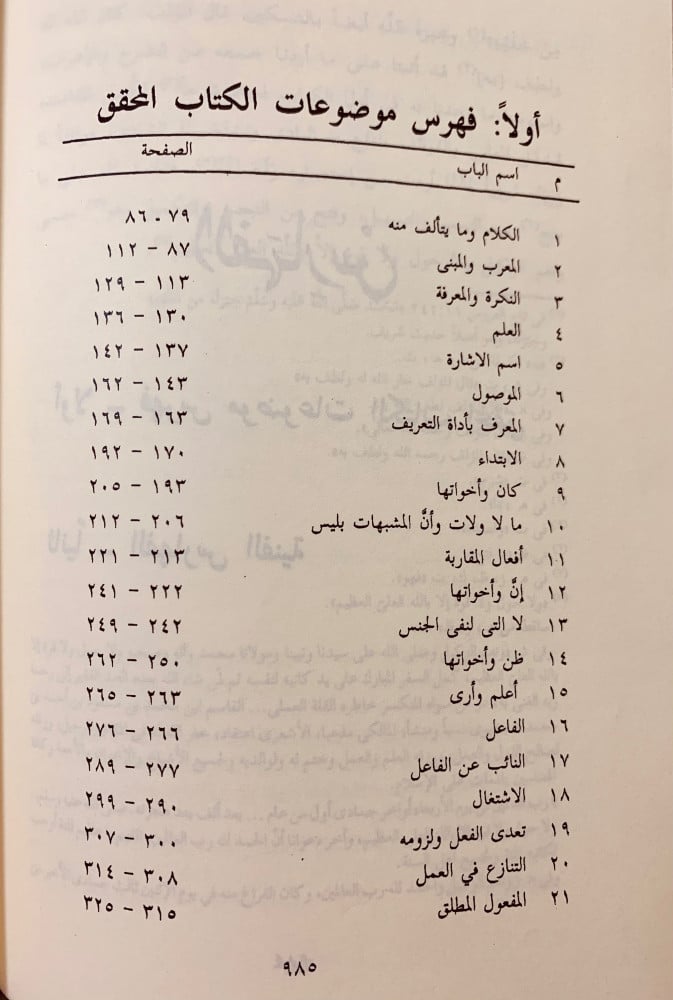 أولاً: فهرس موضوعات الكتاب المحقق
م اسم الباب الصفحة
١ الكلام وما يتألف منه ٧٩ - ٨٦
٢ المعرب والمبنى ٨٧ - ١١٢
٣ النكرة والمعرفة ١١٣ - ١٢٩
٤ العلم ١٣٠ - ١٣٦
٥ اسم الاشارة ١٣٧ - ١٤٢
٦ الموصول ١٤٣ - ١٦٢
٧ المعرف بأداة التعريف ١٦٣ - ١٦٩
٨ الابتداء ١٧٠ - ١٩٢
٩ كان وأخواتها ١٩٣ - ٢٠٥
١٠ ما لا ولات وأنَّ المشبهات بليس ٢٠٦ - ٢١٢
١١ أفعال المقاربة ٢١٣ - ٢٢١
١٢ إنَّ وأخواتها ٢٢٢ - ٢٤١
١٣ لا التى لنفى الجنس ٢٤٢ - ٢٤٩
١٤ ظن وأخواتها ٢٥٠ - ٢٦٢
١٥ أعلم وأرى ٢٦٣ - ٢٦٥
١٦ الفاعل ٢٦٦ - ٢٧٦
١٧ النائب عن الفاعل ٢٧٧ - ٢٨٩
١٨ الاشتغال ٢٩٠ - ٢٩٩
١٩ تعدى الفعل ولزومه ٣٠٠ - ٣٠٧
٢٠ التنازع في العمل ٣٠٨ - ٣١٤
٢١ المفعول المطلق ٣١٥ - ٣٢٥
٩٨٥